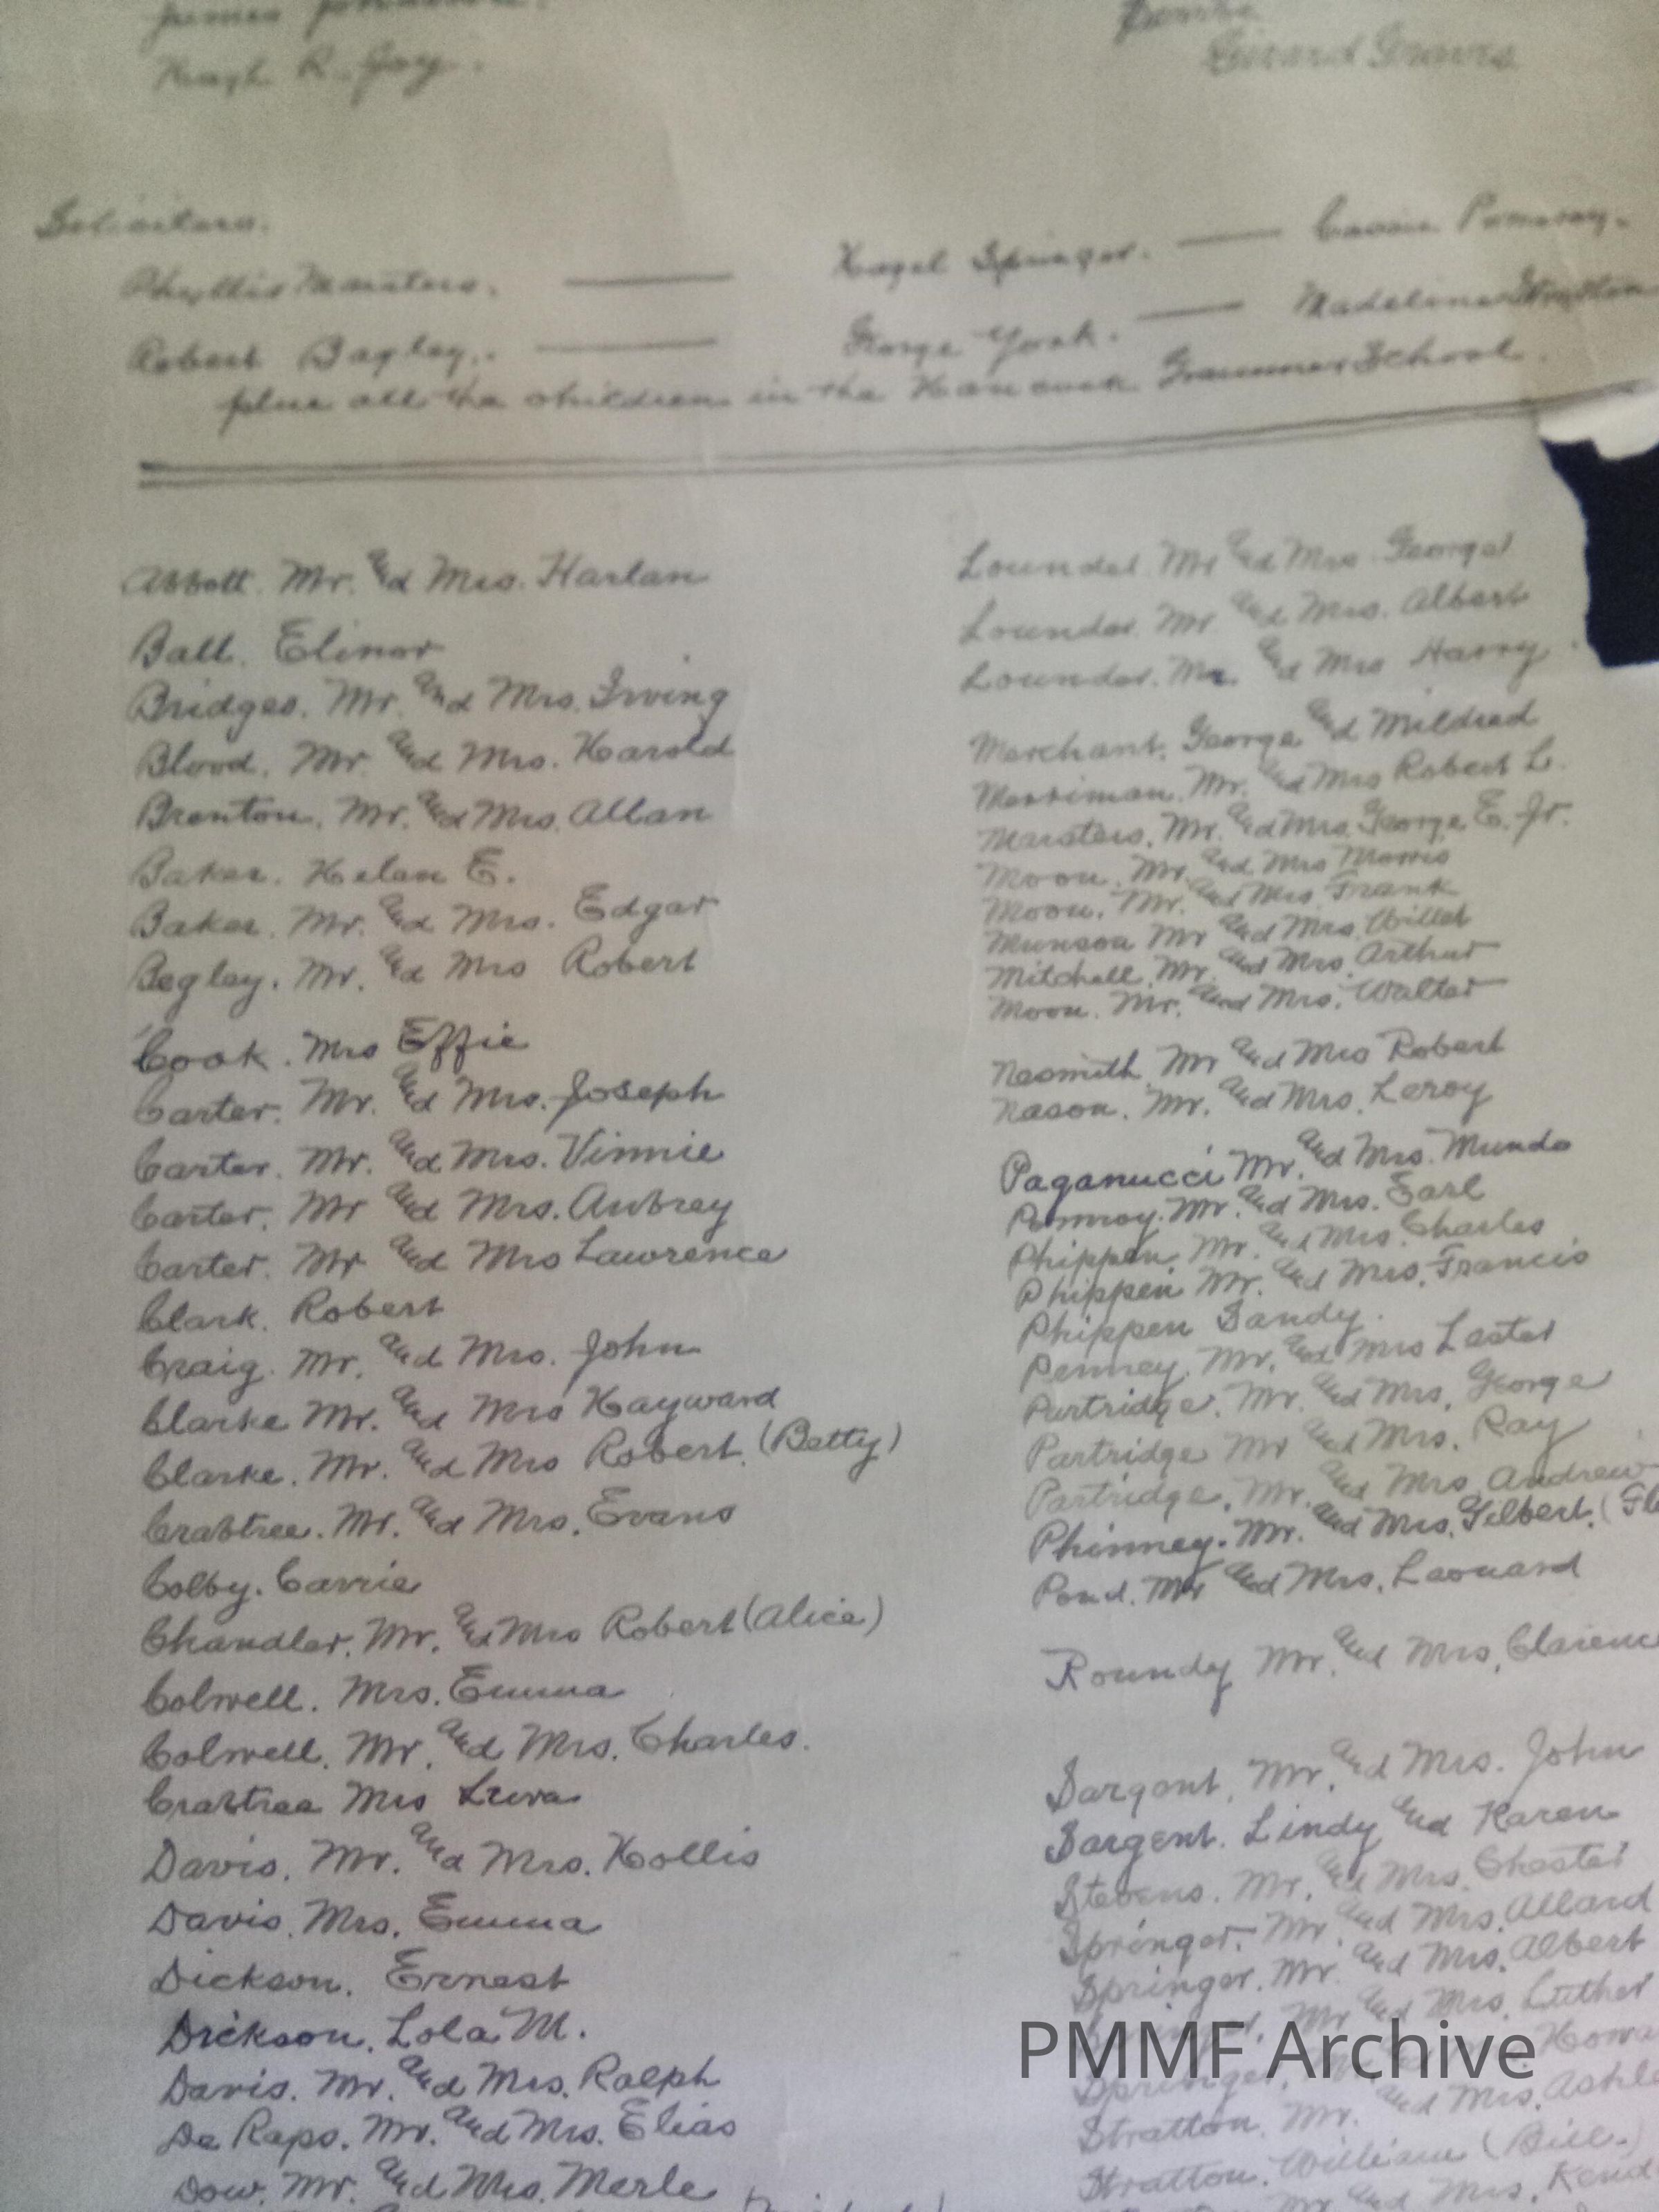 Hugh R. Gray.
Solicitors.
Phyllis Marsters. Hazel Springer. Carrie Pomeroy.
Robert Bagley. George York. Madeline Stratton
plus all the children in the Hancock Grammar School.
Abbott. Mr. and Mrs. Harlan
Ball. Elinor
Bridges. Mr. and Mrs. Irving
Blood. Mr. and Mrs. Harold
Brenton. Mr. and Mrs. Allan
Baker. Helen E.
Baker. Mr. and Mrs. Edgar
Begley. Mr. and Mrs Robert
Cook. Mrs Effie
Carter. Mr. and Mrs. Joseph
Carter. Mr. and Mrs. Vinnie
Carter. Mr and Mrs. Aubrey
Carter. Mr and Mrs Lawrence
Clark. Robert
Craig. Mr. and Mrs. John
Clarke Mr. and Mrs Hayward
Clarke. Mr. and Mrs Robert. (Betty)
Crabtree. Mr. and Mrs. Evans
Colby. Carrie
Chandler. Mr. and Mrs Robert (Alice)
Colwell. Mrs. Emma
Colwell. Mr. and Mrs. Charles.
Crabtree Mrs
Davis. Mr. and Mrs. Hollis
Davis. Mrs. Emma
Dickson. Ernest
Dickson. Lola M.
Davis. Mr. and Mrs. Ralph
De Raps. Mr. and Mrs. Elias
Dow. Mr. and Mrs. Merle
Lounder. Mr and Mrs. George
Lounder. Mr and Mrs. Albert
Lounder. Mr. and Mrs Harry
Merchant. George and Mildred
Merriman. Mr. and Mrs Robert L.
Marsters. Mr. and Mrs. George E. Jr.
Moon. Mr. and Mrs Morris
Moon. Mr. and Mrs. Frank
Munson Mr and Mrs. Willet
Mitchell. Mr. and Mrs. Arthur
Moon. Mr. and Mrs. Walter
Nesmith. Mr and Mrs Robert
Nason. Mr. and Mrs. Leroy
Paganucci Mr. and Mrs. Mundo
Pomroy. Mr. and Mrs. Earl
Phippen. Mr. and Mrs. Charles
Phippen Mr. and Mrs. Francis
Phippen Sandy.
Penney. Mr. and Mrs Lester
Partridge. Mr. and Mrs. George
Partridge Mr and Mrs. Ray
Partridge. Mr. and Mrs. Andrew
Phinney. Mr. and Mrs. Gilbert.
Pond. Mr and Mrs. Leonard
Roundy Mr. and Mrs. Clarenc
Sargent. Mr. and Mrs. John
Sargent. Lindy and Karen
Stevens. Mr. and Mrs. Chester
Springer. Mr. and Mrs. Allard
Springer. Mr. and Mrs. Albert
Springer. Mr and Mrs. Luther
Springer. Howa
Stratton. Mr. and Mrs. Ashle
Stratton. William (Bill.)
Mr and Mrs. Kend
PMMF Archive